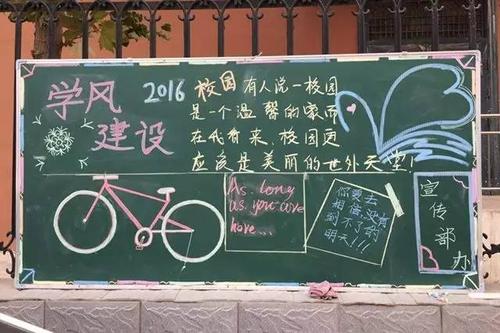 学风
建设
2016 校园 有人说一校园
是一个温馨的家而
在我看来，校园更
应该是美丽的世外天堂！
As long
as you are
here...
你要去
相信没有
到不了的
明天!!!
宣传部办